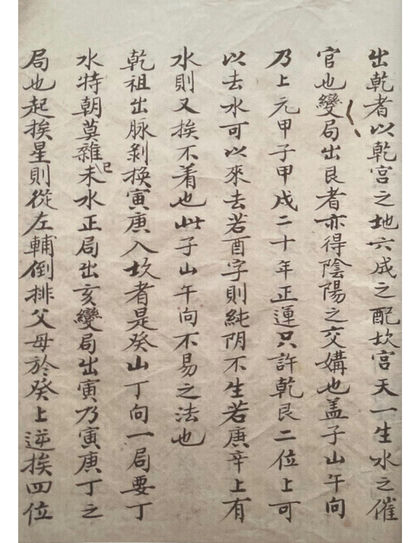 出乾者以乾宮之地六成之配坎宮天一生水之催
官也變局出艮者亦得陰陽之交媾也盖子山午向
乃上元甲子甲戌二十年正運只許乾艮二位上可
以去水可以來去若酉字則純阴不生若庚辛上有
水則又挨不着也此子山午向不易之法也
乾祖出脉剝換寅庚入坎者是癸山丁向一局要丁
水特朝莫雜未巳水正局出亥變局出寅乃寅庚丁之
局也起挨星則從左輔倒排父母於癸上逆挨四位